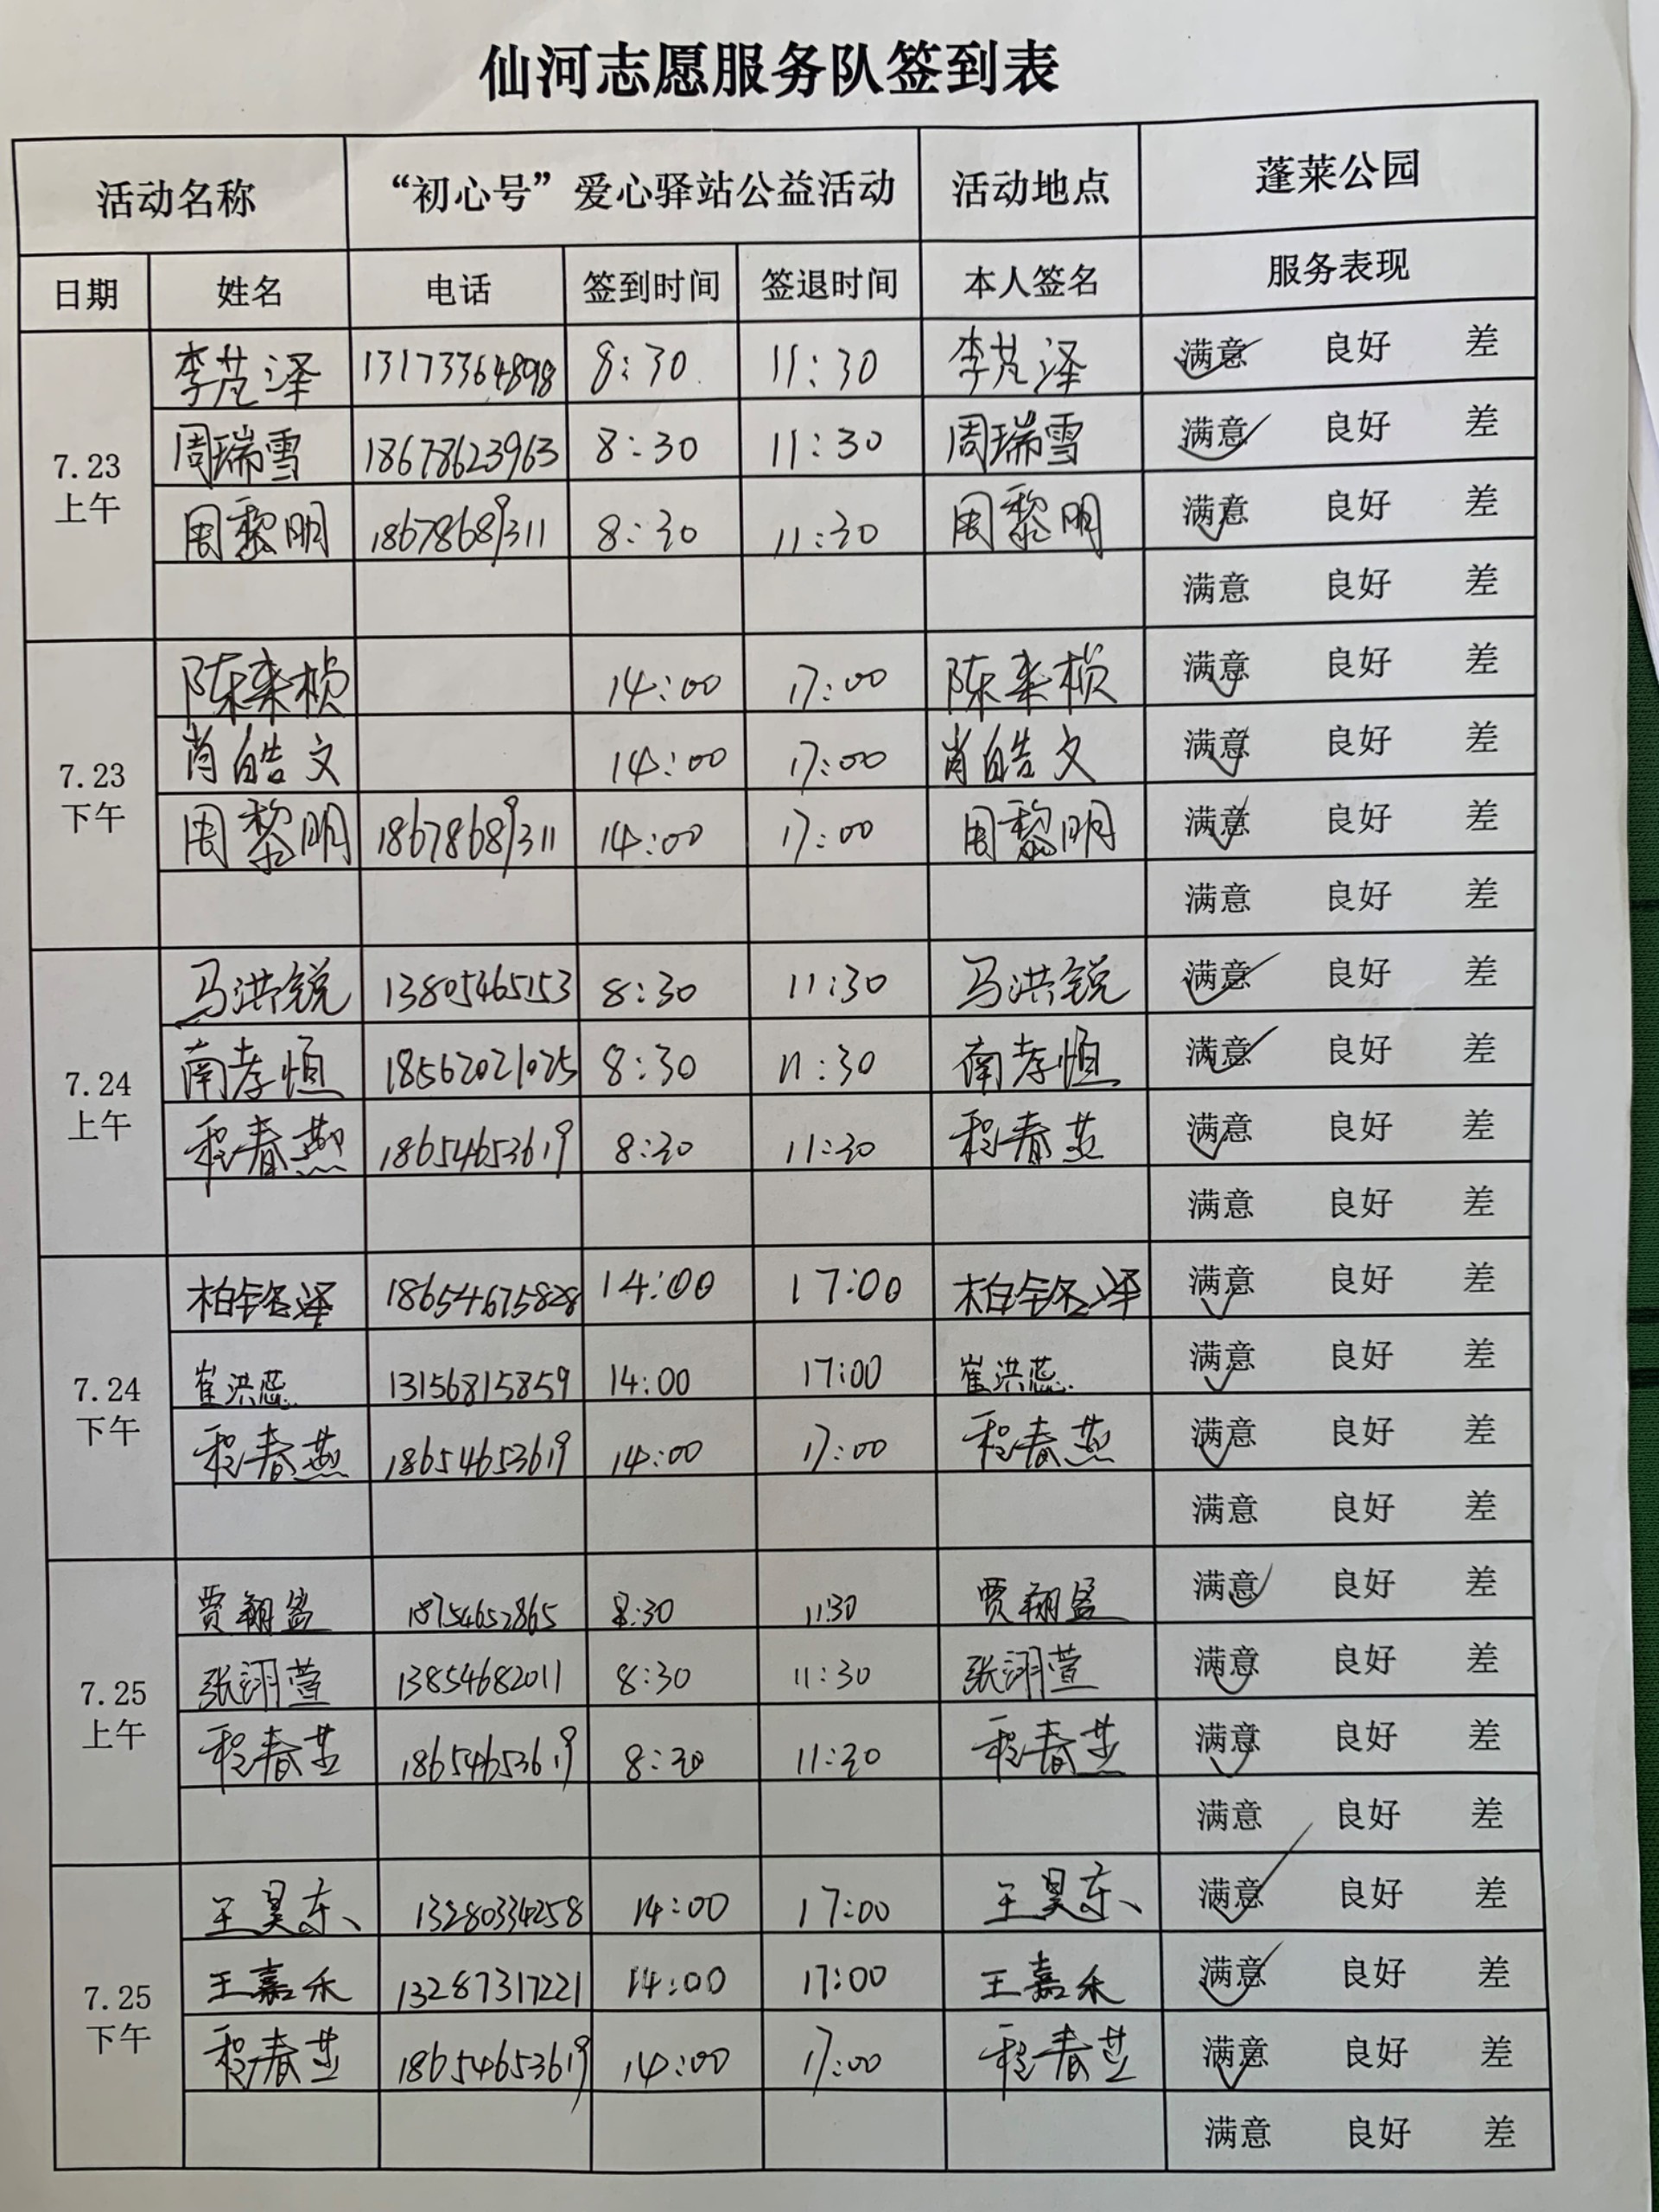 仙河志愿服务队签到表
活动名称 “初心号”爱心驿站公益活动 活动地点 蓬莱公园
日期 姓名 电话 签到时间 签退时间 本人签名 服务表现
7.23 上午
李芃泽 13173364898 8:30 11:30 李芃泽 满意 良好 差
周瑞雪 18678623963 8:30 11:30 周瑞雪 满意 良好 差
周黎明 18678689311 8:30 11:30 周黎明 满意 良好 差
满意 良好 差
7.23 下午
陈桢 14:00 17:00 陈桢 满意 良好 差
肖皓文 14:00 17:00 肖皓文 满意 良好 差
周黎明 18678689311 14:00 17:00 周黎明 满意 良好 差
满意 良好 差
7.24 上午
马洪锐 13805465153 8:30 11:30 马洪锐 满意 良好 差
南孝恒 18562021025 8:30 11:30 南孝恒 满意 良好 差
程春燕 18654653619 8:30 11:30 程春燕 满意 良好 差
满意 良好 差
7.24 下午
柏铭泽 18654675828 14:00 17:00 柏铭泽 满意 良好 差
崔洪蕊 13156815859 14:00 17:00 崔洪蕊 满意 良好 差
程春燕 18654653619 14:00 17:00 程春燕 满意 良好 差
满意 良好 差
7.25 上午
贾翔 18754652865 8:30 11:30 贾翔 满意 良好 差
张翊萱 13854682011 8:30 11:30 张翊萱 满意 良好 差
程春燕 18654653619 8:30 11:30 程春燕 满意 良好 差
满意 良好 差
7.25 下午
王昊东 13280334258 14:00 17:00 王昊东 满意 良好 差
王嘉禾 13287317221 14:00 17:00 王嘉禾 满意 良好 差
程春燕 18654653619 14:00 17:00 程春燕 满意 良好 差
满意 良好 差